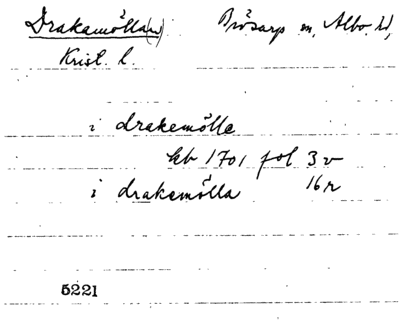 Drakamölla(n) Brösarp sn, Albo hd,
Krist. l.
i drakemölle
kb 1701 fol 3v
i drakemölla 16r
5221